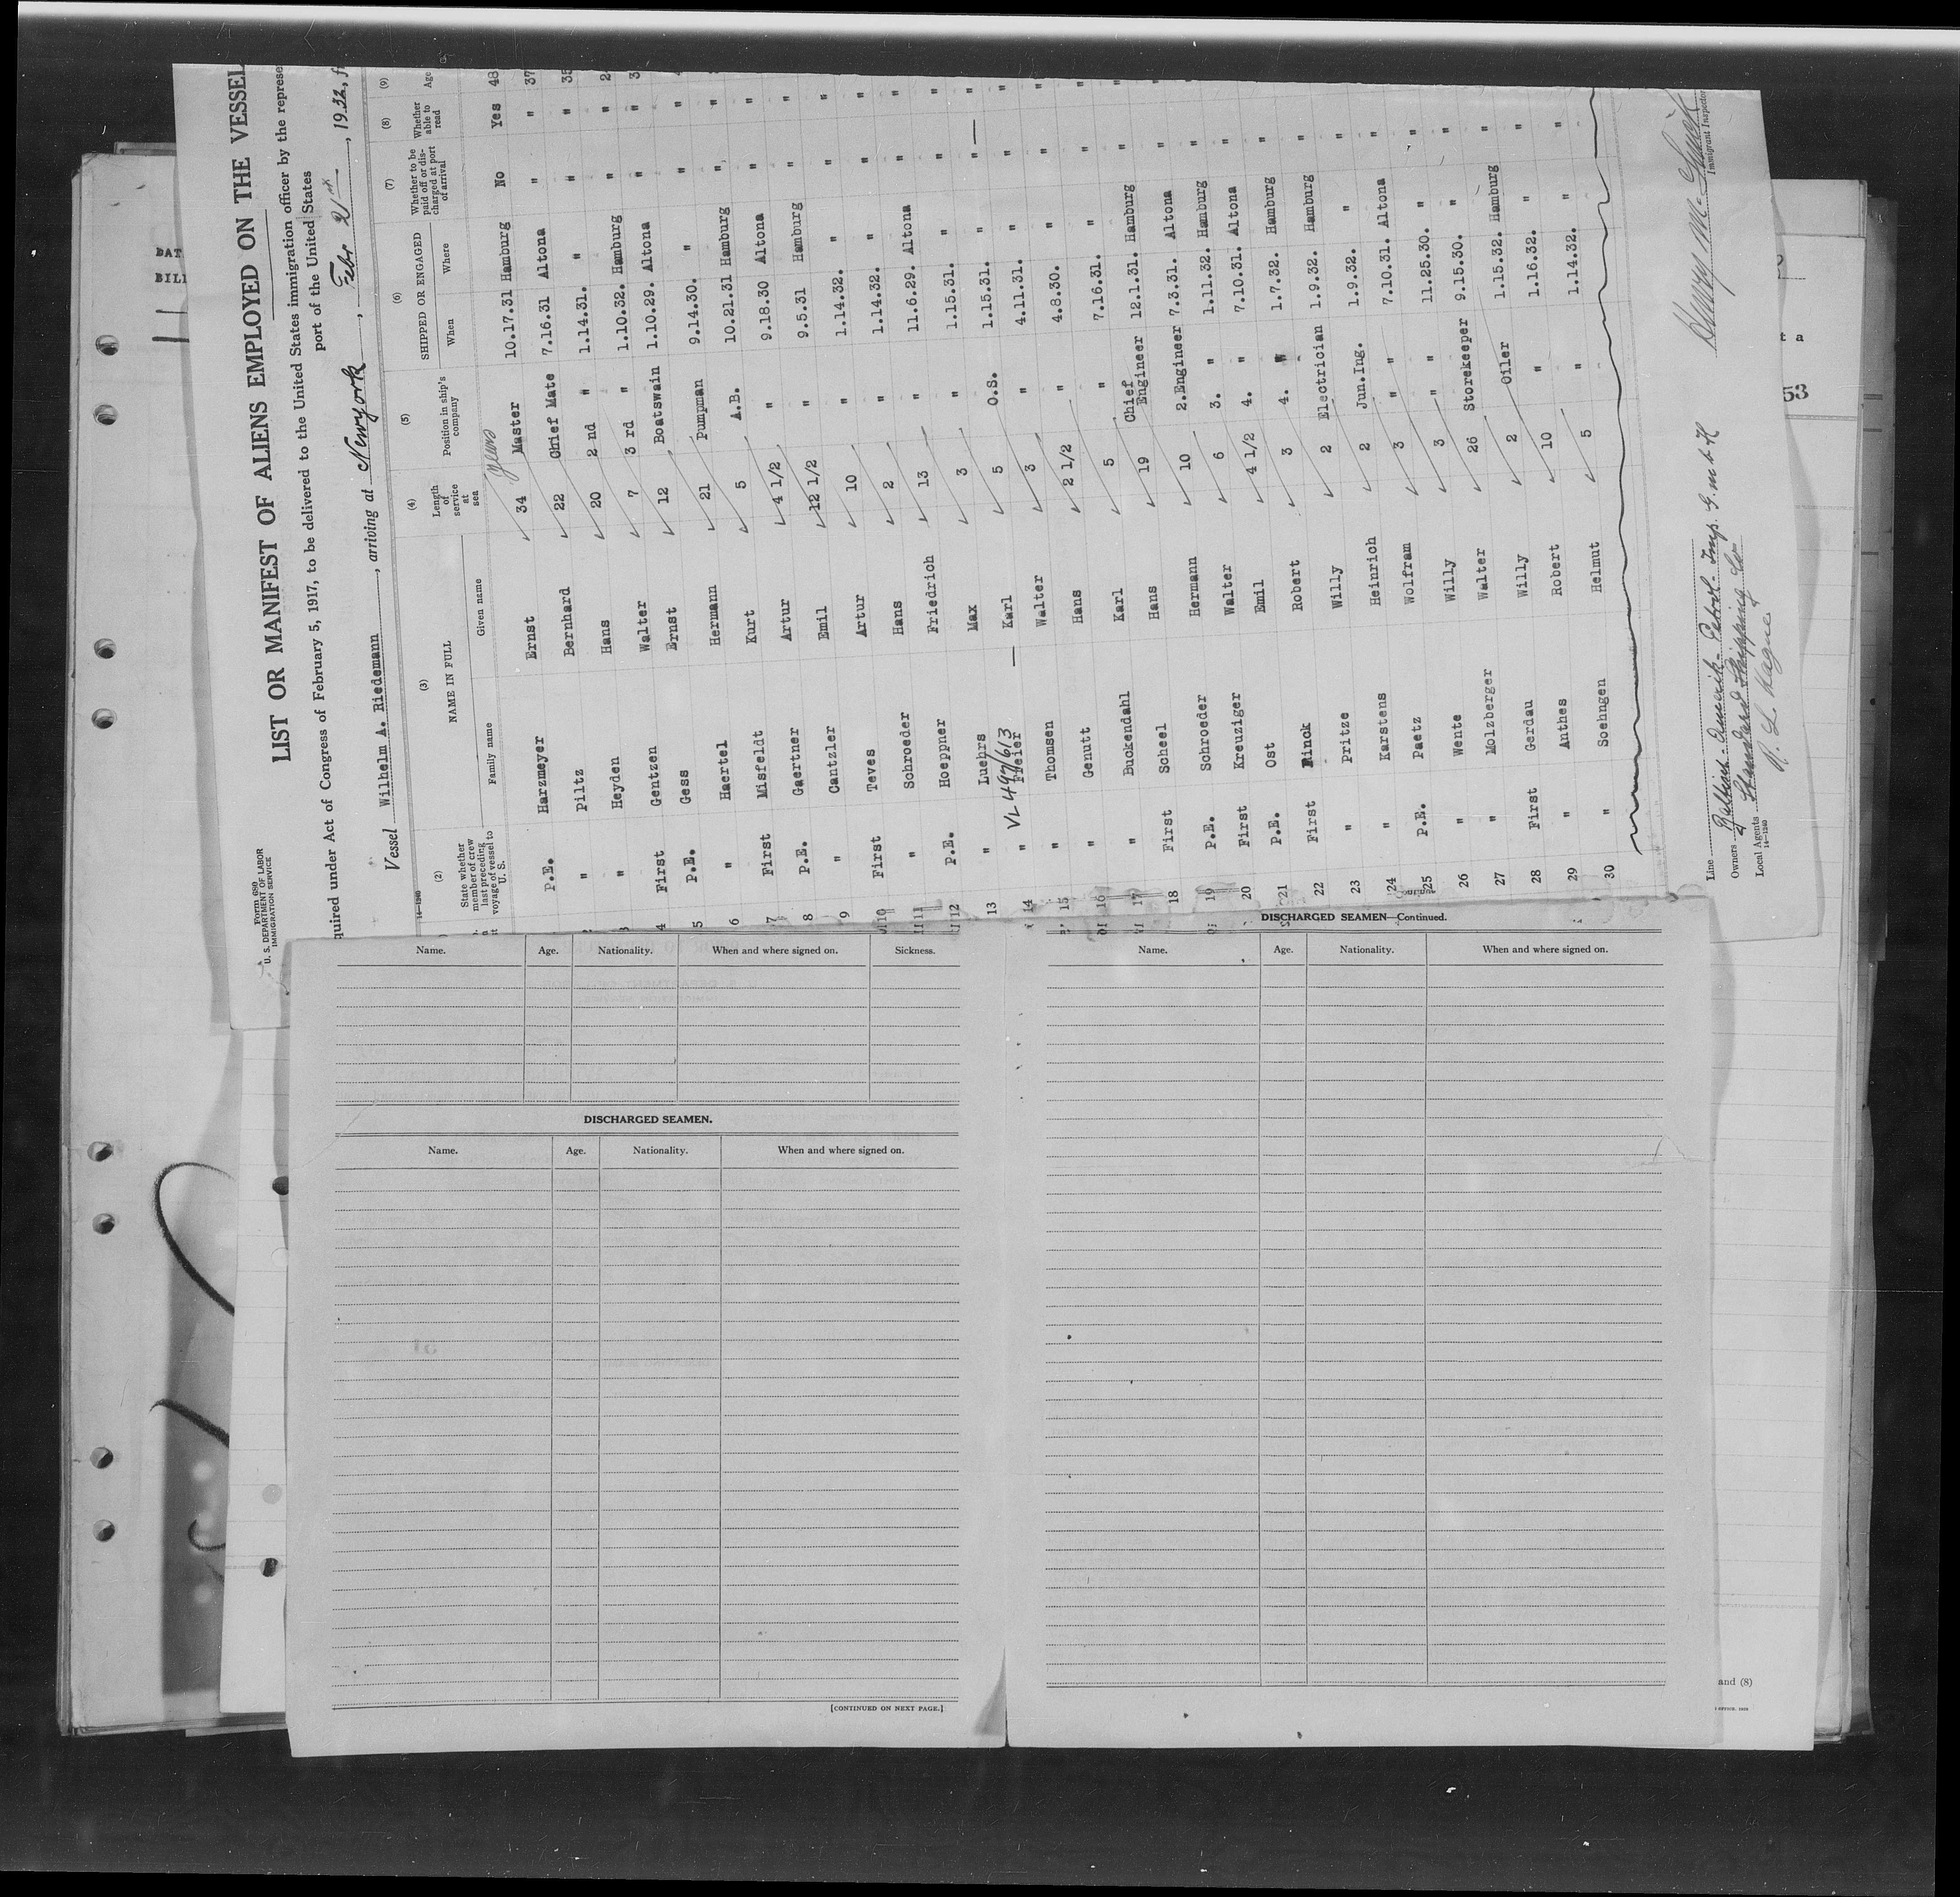 Form 689
U. S. DEPARTMENT OF LABOR
IMMIGRATION SERVICE
LIST OR MANIFEST OF ALIENS EMPLOYED ON THE VESSEL
quired under Act of Congress of February 5, 1917, to be delivered to the United States immigration officer by the represe
port of the United States
Vessel Wilhelm A. Riedemann, arriving at Newyork, Febr 21st, 1932, f
14—1240
(2) (3) (4) (5) (6) (7) (8) (9)
State whether member of crew last preceding voyage of vessel to U. S.
NAME IN FULL
Family name Given name
Length of service at sea
Position in ship's company
SHIPPED OR ENGAGED
When Where
Whether to be paid off or discharged at port of arrival
Whether able to read
Age
years
P.E. Harzmeyer Ernst 34 Master 10.17.31 Hamburg No Yes 48
" Piltz Bernhard 22 Chief Mate 7.16.31 Altona " " 37
" Heyden Hans 20 2 nd " 1.14.31. " " " 35
4 First Gentzen Walter 7 3 rd " 1.10.32. Hamburg " "
5 P.E. Gess Ernst 12 Boatswain 1.10.29. Altona " "
6 " Haertel Hermann 21 Pumpman 9.14.30. " " "
7 First Misfeldt Kurt 5 A.B. 10.21.31 Hamburg " "
8 P.E. Gaertner Artur 4 1/2 " 9.18.30 Altona " "
9 " Cantzler Emil 12 1/2 " 9.5.31 Hamburg " "
10 First Teves Artur 10 " 1.14.32. " " "
11 " Schroeder Hans 2 " 1.14.32. " " "
12 P.E. Hoeppner Friedrich 13 " 11.6.29. Altona " "
13 " Luehrs Max 3 " 1.15.31. " " "
14 " VL 497/613 Karl 5 O.S. 1.15.31. " " "
15 " Thomsen Walter 3 " 4.11.31. " " "
16 " Genutt Hans 2 1/2 " 4.8.30. " " "
17 " Buckendahl Karl 5 " 7.16.31. " " "
18 First Scheel Hans 19 Chief Engineer 12.1.31. Hamburg " "
19 P.E. Schroeder Hermann 10 2.Engineer 7.3.31. Altona " "
20 First Kreuziger Walter 6 3. " 1.11.32. Hamburg "
21 P.E. Ost Emil 4 1/2 4. " 7.10.31. Altona "
22 First Rinck Robert 3 4. " 1.7.32. Hamburg "
23 " Pritze Willy 2 Electrician 1.9.32. Hamburg "
24 " Karstens Heinrich 2 Jun.Ing. 1.9.32. " "
25 P.E. Paetz Wolfram 3 " " 7.10.31. Altona "
26 " Wente Willy 3 " " 11.25.30. " "
27 " Molzberger Walter 26 Storekeeper 9.15.30. " "
28 First Gerdau Willy 2 Oiler 1.15.32. Hamburg "
29 " Anthes Robert 10 " 1.16.32. " "
30 " Soehngen Helmut 5 " 1.14.32. " "
Line
Owners Baltisch-Amerik. Petrol. Imp. G.m.b.H
Local Agents Standard Shipping Co
14—1240
Immigrant Inspector
DAT
BILL
53
Name. Age. Nationality. When and where signed on. Sickness.
DISCHARGED SEAMEN.
Name. Age. Nationality. When and where signed on.
[CONTINUED ON NEXT PAGE.]
DISCHARGED SEAMEN—Continued.
Name. Age. Nationality. When and where signed on.
and (8)